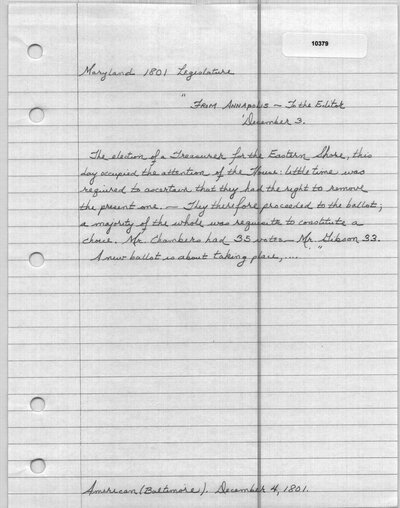 10379
Maryland 1801 Legislature
"From Annapolis – To the Editor
'December 3.
The election of a Treasurer for the Eastern Shore, this
day occupied the attention of the House: little time was
required to ascertain that they had the right to remove
the present one. — They therefore proceeded to the ballot;
a majority of the whole was requisite to constitute a
choice. Mr. Chambers had 35 votes — Mr. Gibson 33.
A new ballot is about taking place, ...."
American (Baltimore). December 4, 1801.